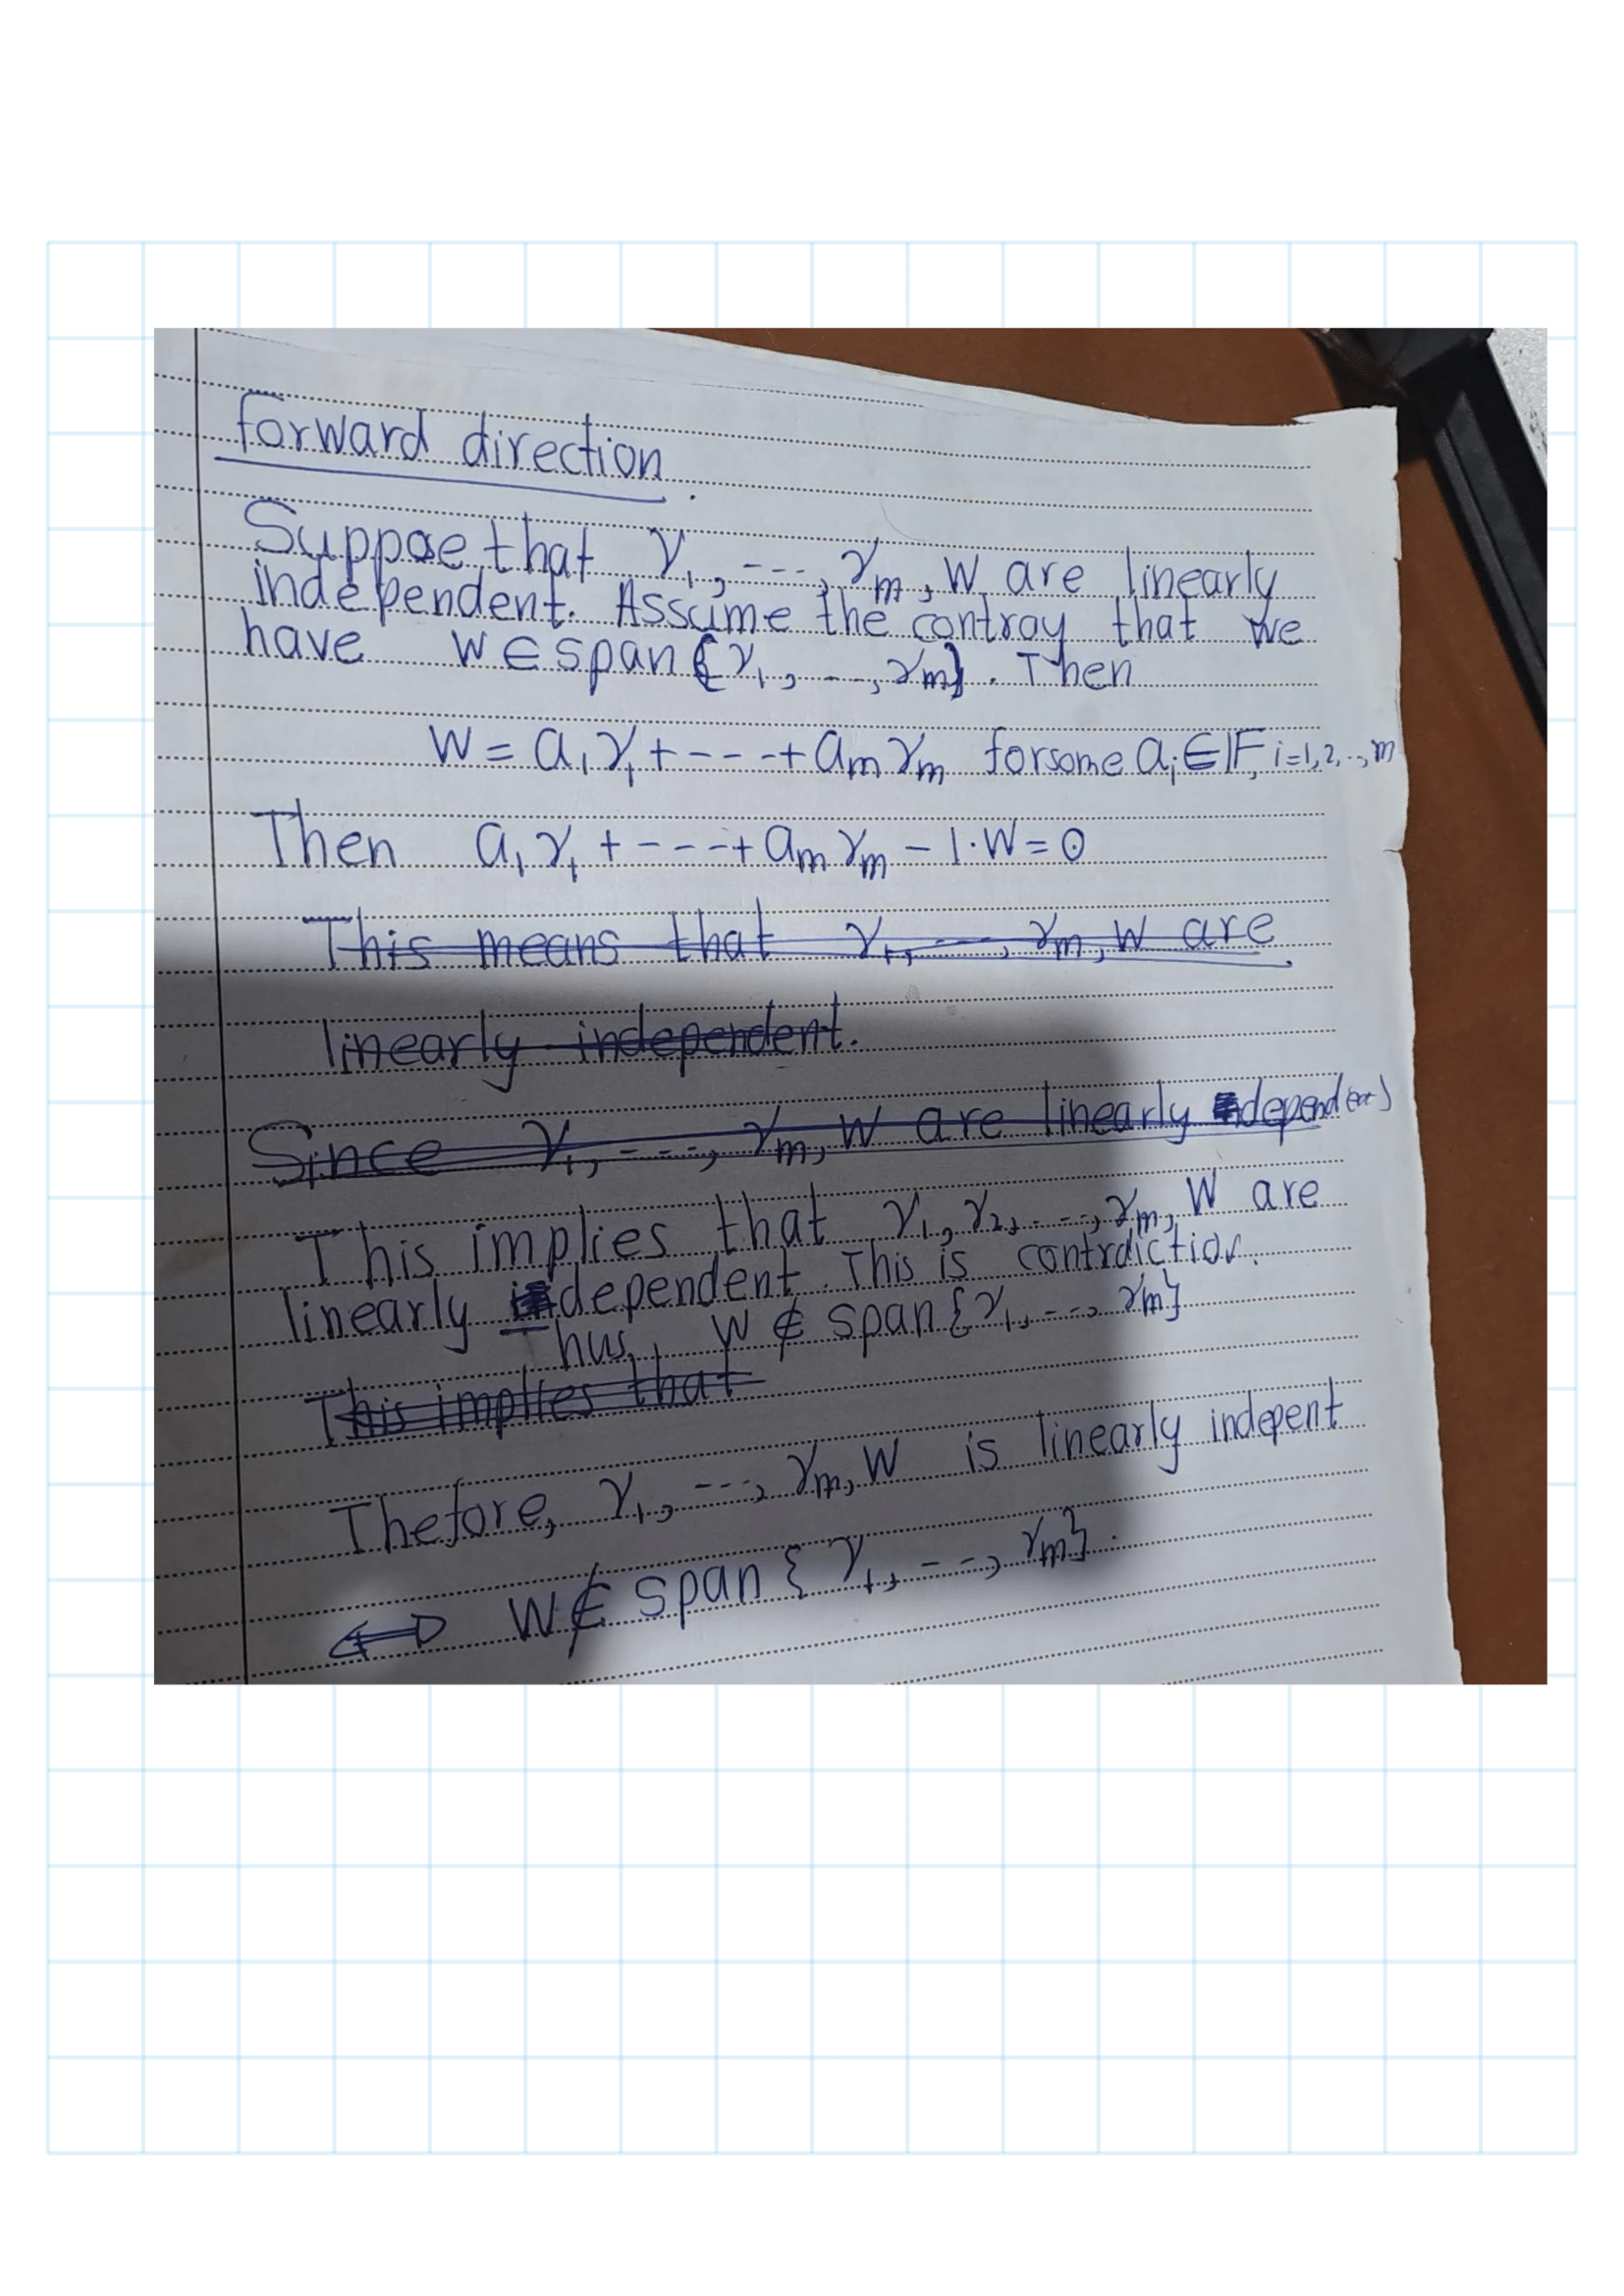 forward direction.
Suppose that γ₁, ---, γm, W are linearly
independent. Assume the contray that we
have W ∈ span{γ₁, ---, γm}. Then
W = a₁γ₁ + --- + amγm forsome ai ∈ F, i=1,2,..,m
Then a₁γ₁ + --- + amγm - 1·W = 0
This means that γ₁, ---, γm, W are
linearly independent.
Since γ₁, ---, γm, W are linearly dependent
This implies that γ₁, γ₂, ---, γm, W are
linearly dependent. This is contrdiction.
hus, W ∉ span{γ₁, ---, γm}
This implies that
Thefore, γ₁, ---, γm, W is linearly indepent
⟺ W ∉ span{γ₁, ---, γm}.